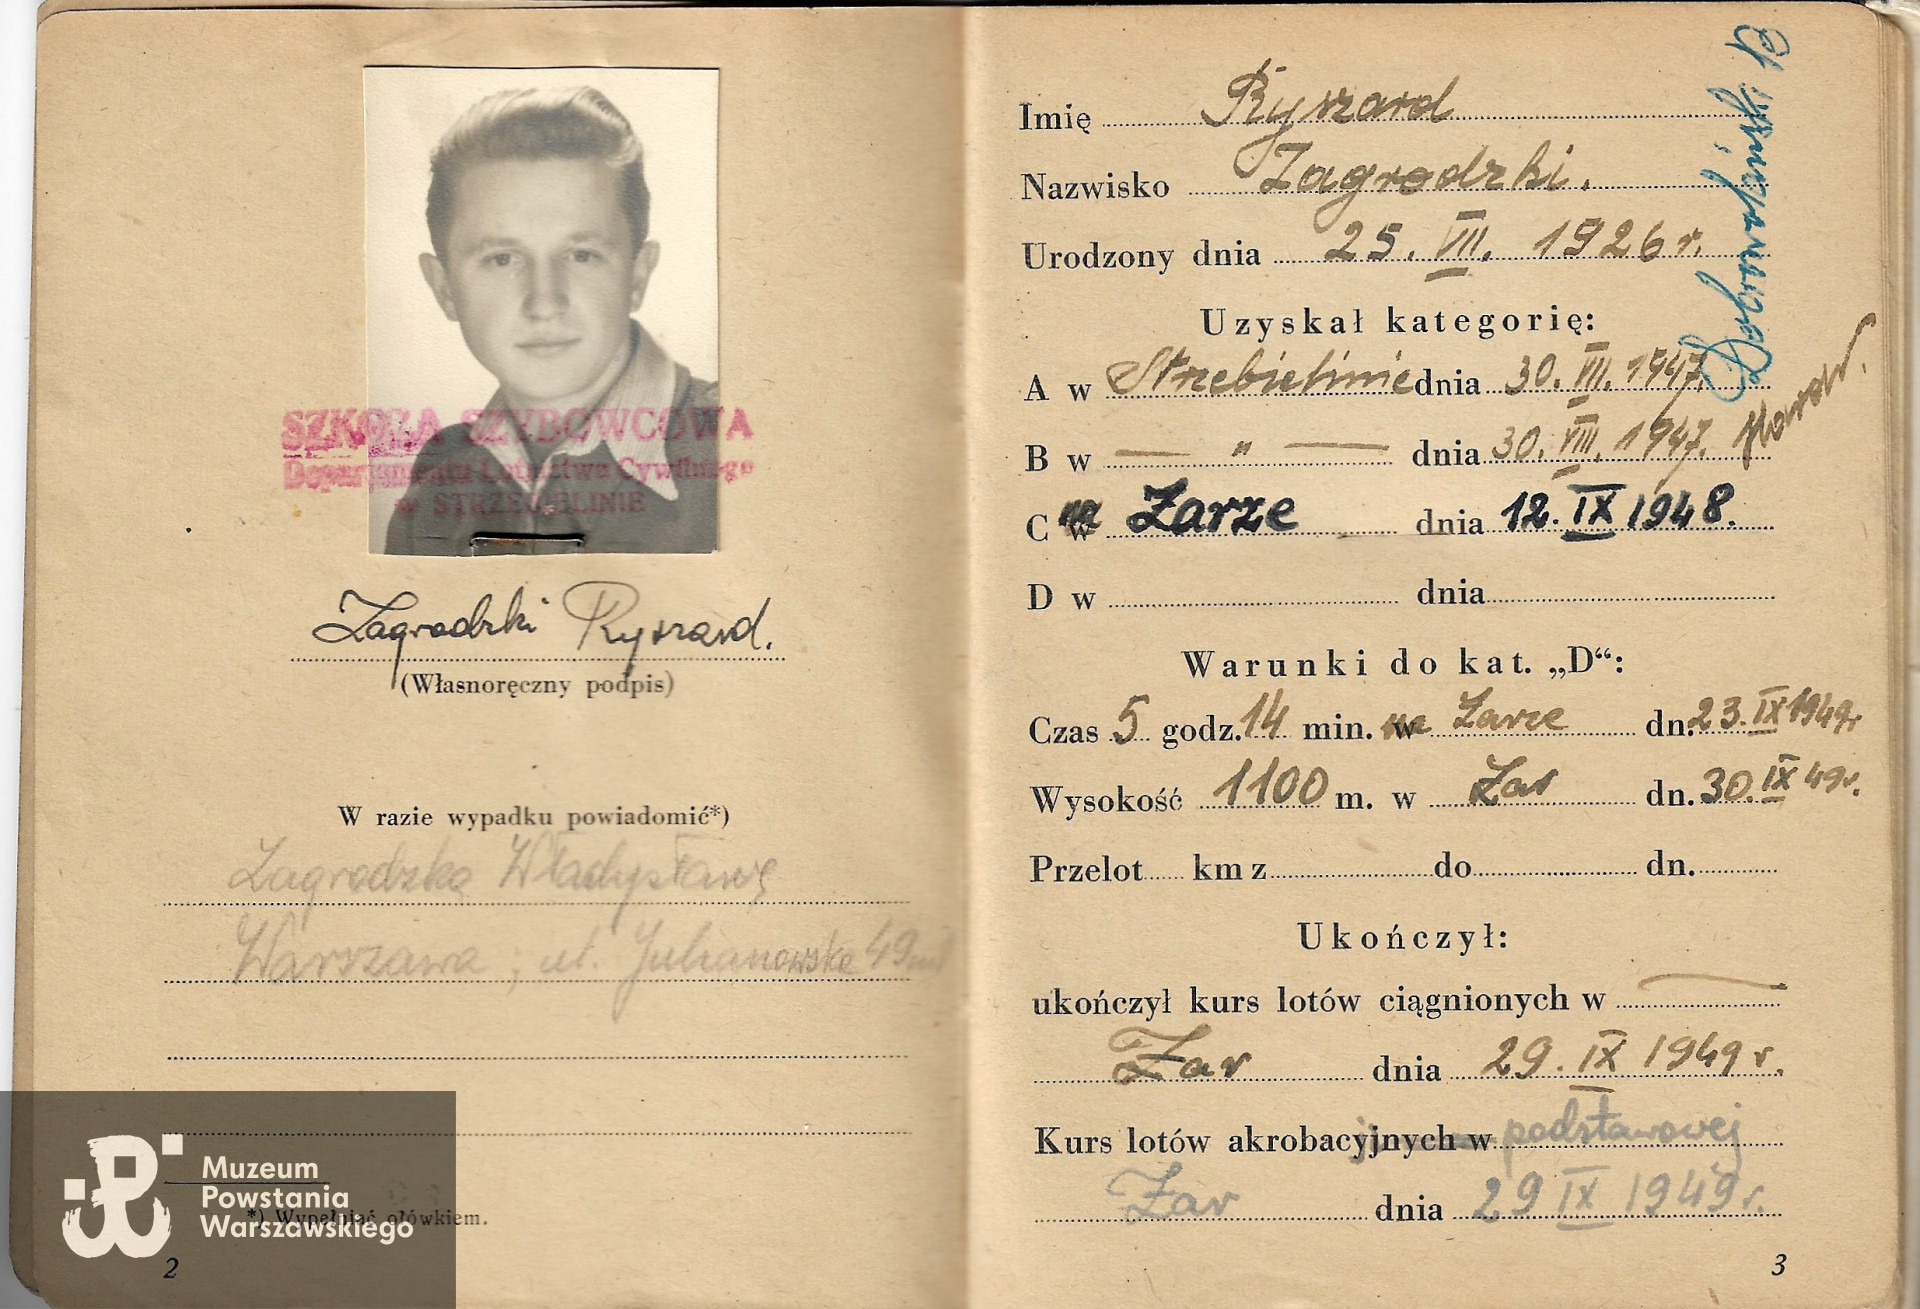 SZKOŁA SZYBOWCOWA
Departamentu Lotnictwa Cywilnego
w STRZEBIELINIE
Zagrodzki Ryszard.
(Własnoręczny podpis)
W razie wypadku powiadomić*)
Zagrodzką Władysławę
Warszawa, ul. Julianowska 49
*) Wypełniać ołówkiem.
2
Muzeum
Powstania
Warszawskiego
Imię Ryszard
Nazwisko Zagrodzki.
Urodzony dnia 25. VII. 1926 r.
Uzyskał kategorię:
A w Strzebielinie dnia 30. VIII. 1947.
B w — „ — dnia 30. VIII. 1947.
C na Żarze dnia 12. IX 1948.
D w dnia
Warunki do kat. „D“:
Czas 5 godz. 14 min. na Żarze dn. 23. IX 1949r
Wysokość 1100 m. w Żar dn. 30. IX 49r.
Przelot km z do dn.
Ukończył:
ukończył kurs lotów ciągnionych w —
Żar dnia 29. IX 1949 r.
Kurs lotów akrobacyjnych w podstawowej
Żar dnia 29 IX 1949r.
3